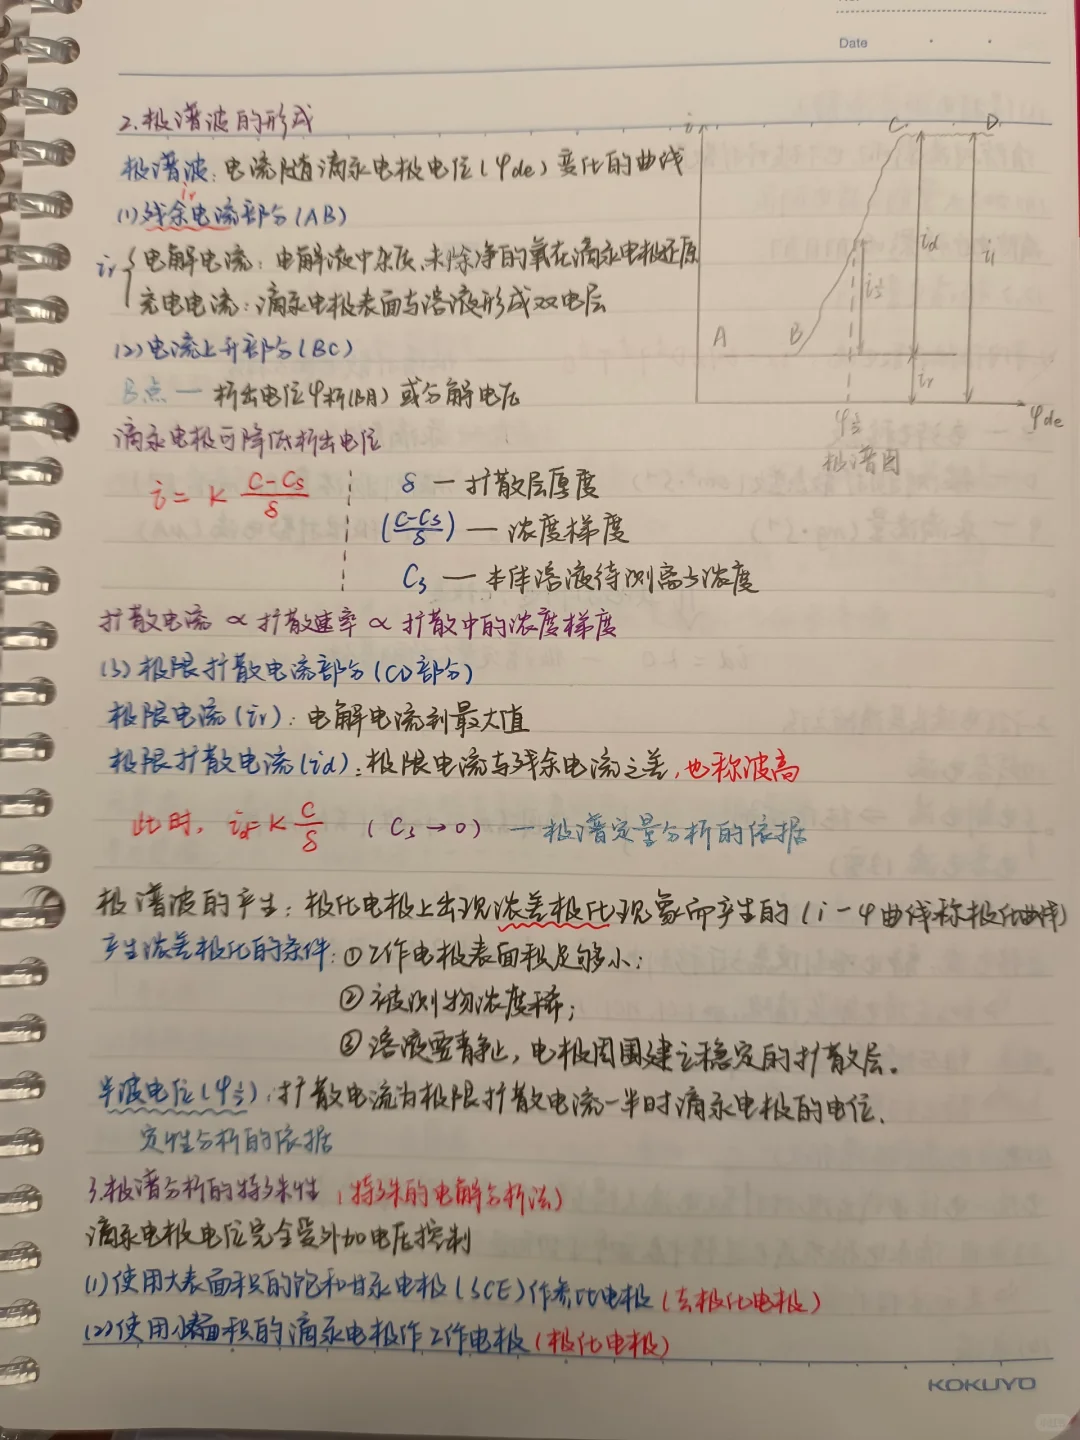 Date
2.极谱波的形成
极谱波:电流随滴汞电极电位(φde)变化的曲线
ir
(1)残余电流部分(AB)
ir { 电解电流:电解液中杂质、未除净的氧在滴汞电极还原
充电电流:滴汞电极表面与溶液形成双电层
(2)电流上升部分(BC)
B点 — 析出电位φ析(阴)或分解电压
滴汞电极可降低析出电位
i = K (C-Cs)/δ
δ — 扩散层厚度
((C-Cs)/δ) — 浓度梯度
Cs — 本体溶液待测离子浓度
扩散电流 ∝ 扩散速率 ∝ 扩散中的浓度梯度
(3)极限扩散电流部分(CD部分)
极限电流(ir):电解电流到最大值
极限扩散电流(id):极限电流与残余电流之差,也称波高
此时, id = K C/δ (Cs→0) — 极谱定量分析的依据
极谱波的产生:极化电极上出现浓差极化现象而产生的(i-φ曲线称极化曲线)
产生浓差极化的条件:①工作电极表面积足够小;
②被测物浓度稀;
③溶液要静止,电极周围建立稳定的扩散层.
半波电位(φ½):扩散电流为极限扩散电流一半时滴汞电极的电位.
定性分析的依据
3.极谱分析的特殊性(特殊的电解分析法)
滴汞电极电位完全受外加电压控制
(1)使用大表面积的饱和甘汞电极(SCE)作参比电极(去极化电极)
(2)使用小表面积的滴汞电极作工作电极(极化电极)
i
C
D
id
il
i½
A
B
ir
φ½
φde
极谱图
KOKUYO